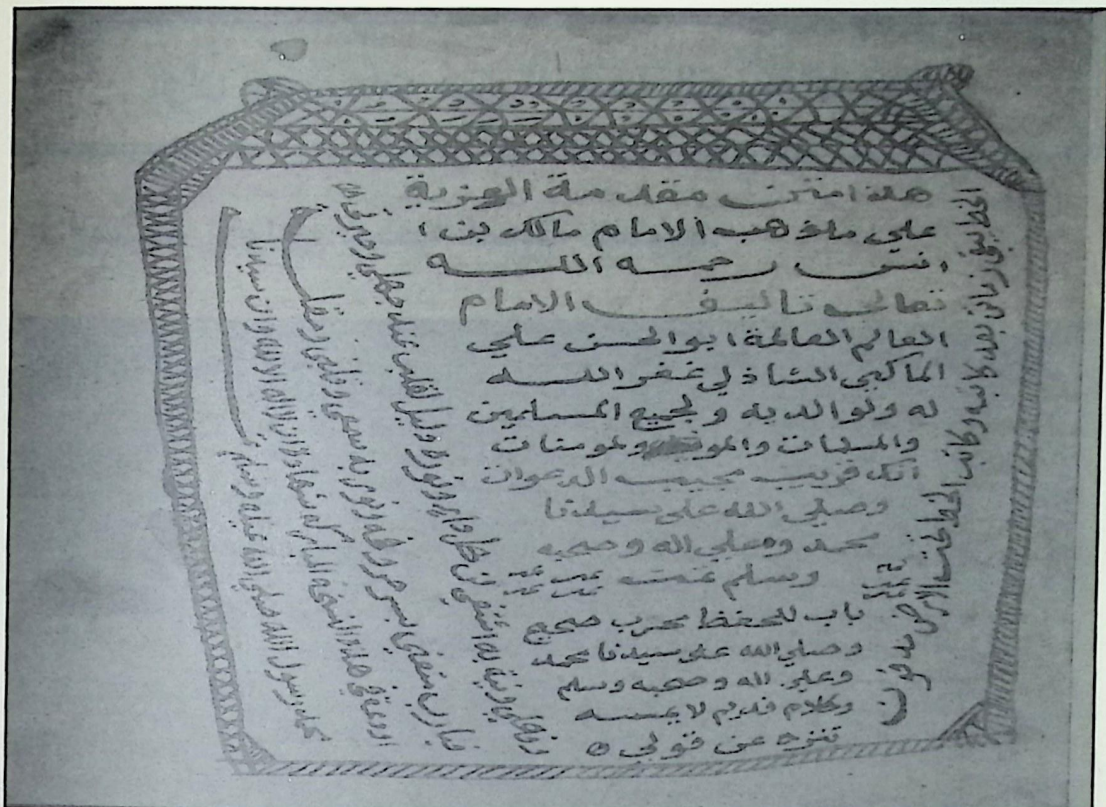 هذا متن مقدمة العزية
علي ماذهب الامام مالك بن ا
انس رحمه اللـــه
تعالى تاليف الامام
العالم العالمة ابو الحسن علي
المالكي الشاذلي غفر اللـــه
له ولوالديه ولجميع المسلمين
والمسلمات والمو ولمومنات
انك قريب مجيب الدعوات
وصلي الله على سيدنا
محمد وعلي اله وصحبه
وسلم تمت
باب للحفظ مجرب صحيح
وصلي الله على سيدنا محمد
وعلى اله وصحبه وسلم
وكلام قديم لا يمـــه
تنزه عن قولي
الخط يبقى زمانا بعد كاتبه وكاتب الخط تحت الارض مدفون
فيارب متعني بسر حروفه ونور به سمعي وقلبي
ادوعة في هذه النسخة المباركة شهادة ان لا اله الا الله وان سيدنا
محمد رسول الله صلى الله عليه وسلم